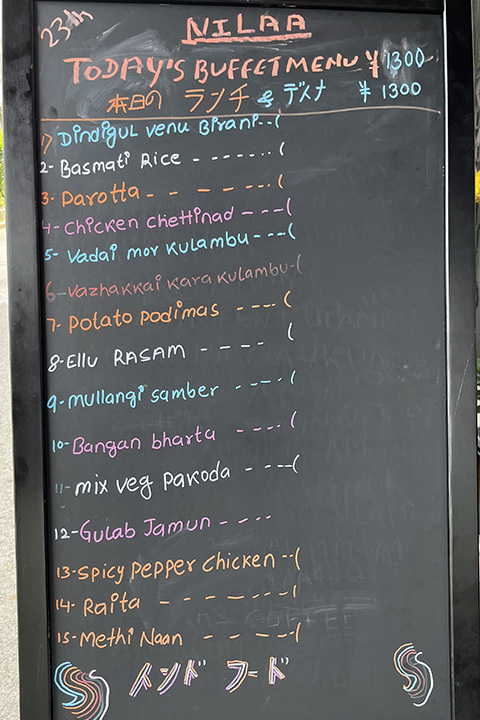 23th
NILAA
TODAY'S BUFFET MENU ¥ 1300
本日の ランチ & デスナ ¥ 1300
1) Dindigul venu Birani - - (
2- Basmati Rice - - - - - - - (
3- Parotta - - - - - - - (
4- Chicken Chettinad - - - (
5- Vadai mor kulambu - - - (
6- Vazhakkai kara kulambu - (
7- Potato podimas - - - - (
8- Ellu RASAM - - - - (
9- mullangi samber - - - - (
10- Bangan bharta - - - - (
11- mix veg pakoda - - - - (
12- Gulab Jamun - - - -
13- Spicy pepper chicken - - (
14- Raita - - - - - - - (
15- Methi Naan - - - - - (
インド フード